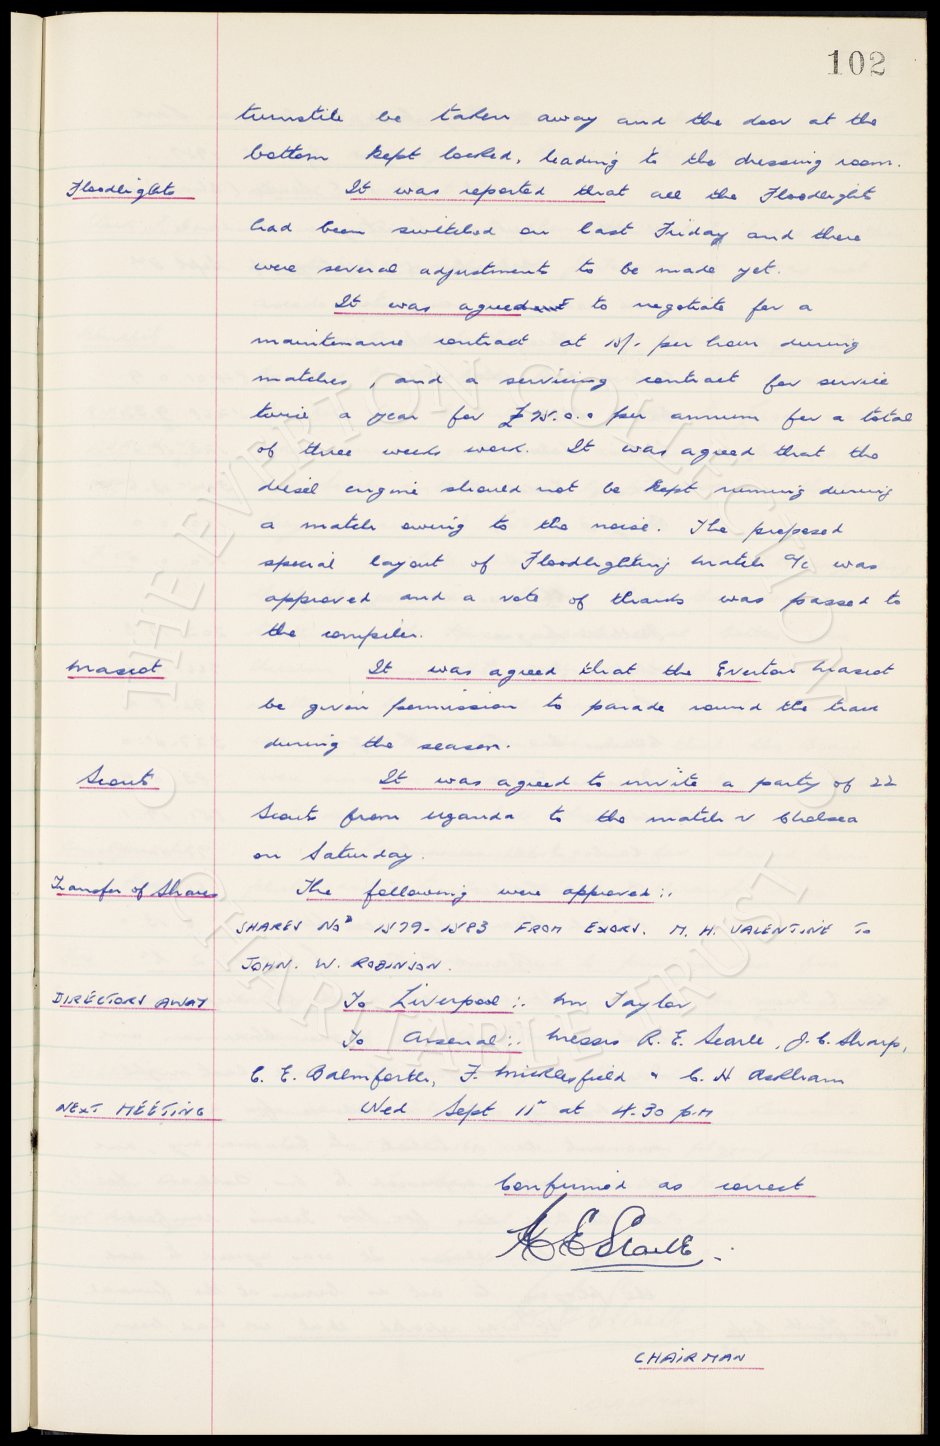 102
turnstile be taken away and the door at the
bottom kept locked, leading to the dressing room.
Floodlights It was reported that all the Floodlights
had been switched on last Friday and there
were several adjustments to be made yet.
It was agreed to negotiate for a
maintenance contract at 15/- per hour during
matches, and a servicing contract for service
twice a year for per annum for a total
of three weeks work. It was agreed that the
diesel engine should not be kept running during
a match owing to the noise. The proposed
special layout of Floodlighting match a/c was
approved and a vote of thanks was passed to
the compiler.
Mascot It was agreed that the Everton Mascot
be given permission to parade round the track
during the season.
Scouts It was agreed to invite a party of 22
Scouts from Uganda to the match v Chelsea
on Saturday.
Transfer of Shares The following were approved :-
SHARES NOS 1579-1583 FROM EXORS. M. H. VALENTINE TO
JOHN. W. ROBINSON.
DIRECTORS AWAY To Liverpool :- Mr Taylor
To Arsenal :- Messrs R. E. Searle, J. C. Sharp,
C. E. Balmforth, F. Micklesfield & C. H Askham
NEXT MEETING Wed Sept 11th at 4.30 p.m
Confirmed as correct
R E Searle
CHAIRMAN
© THE EVERTON COLLECTION ©
CHARITABLE TRUST